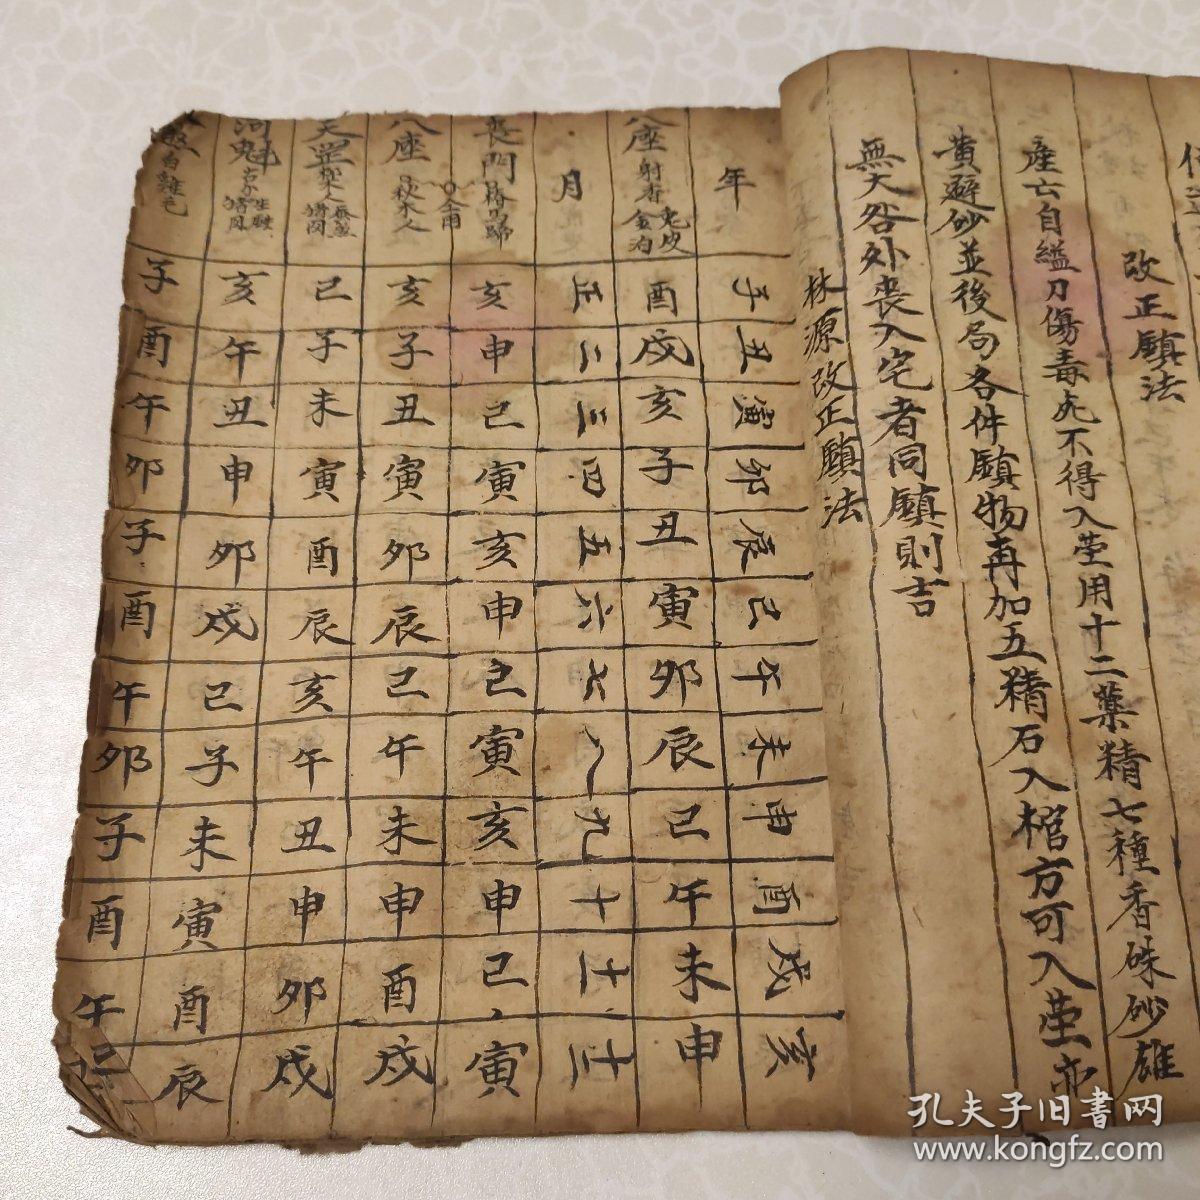 改正鎮法
產亡自縊刀傷毒死不得入塋用十二藥精七種香硃砂雄
黃避砂並後局各件鎮物再加五精石入棺方可入塋亦
無大咎外喪入宅者同鎮則吉
林源改正鎮法
年 子 丑 寅 卯 辰 巳 午 未 申 酉 戌 亥
八座 射香 兔皮 金泊 酉 戌 亥 子 丑 寅 卯 辰 巳 午 未 申
月 正 二 三 四 五 六 七 八 九 十 十一 十二
喪門 亥 申 巳 寅 亥 申 巳 寅 亥 申 巳 寅
八座 亥 子 丑 寅 卯 辰 巳 午 未 申 酉 戌
天罡 巳 子 未 寅 酉 辰 亥 午 丑 申 卯 戌
河魁 亥 午 丑 申 卯 戌 巳 子 未 寅 酉 辰
白雞毛 子 酉 午 卯 子 酉 午 卯 子 酉 午
孔夫子旧书网
www.kongfz.com